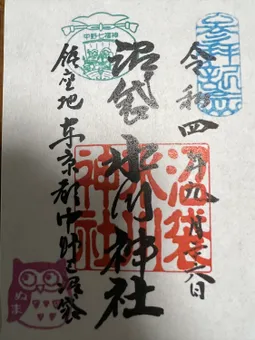 奉拝
令和四年九月二六日
沼袋氷川神社
沼袋
氷川
神社
中野七福神
鎮座地 東京都中野区沼袋
ぬま